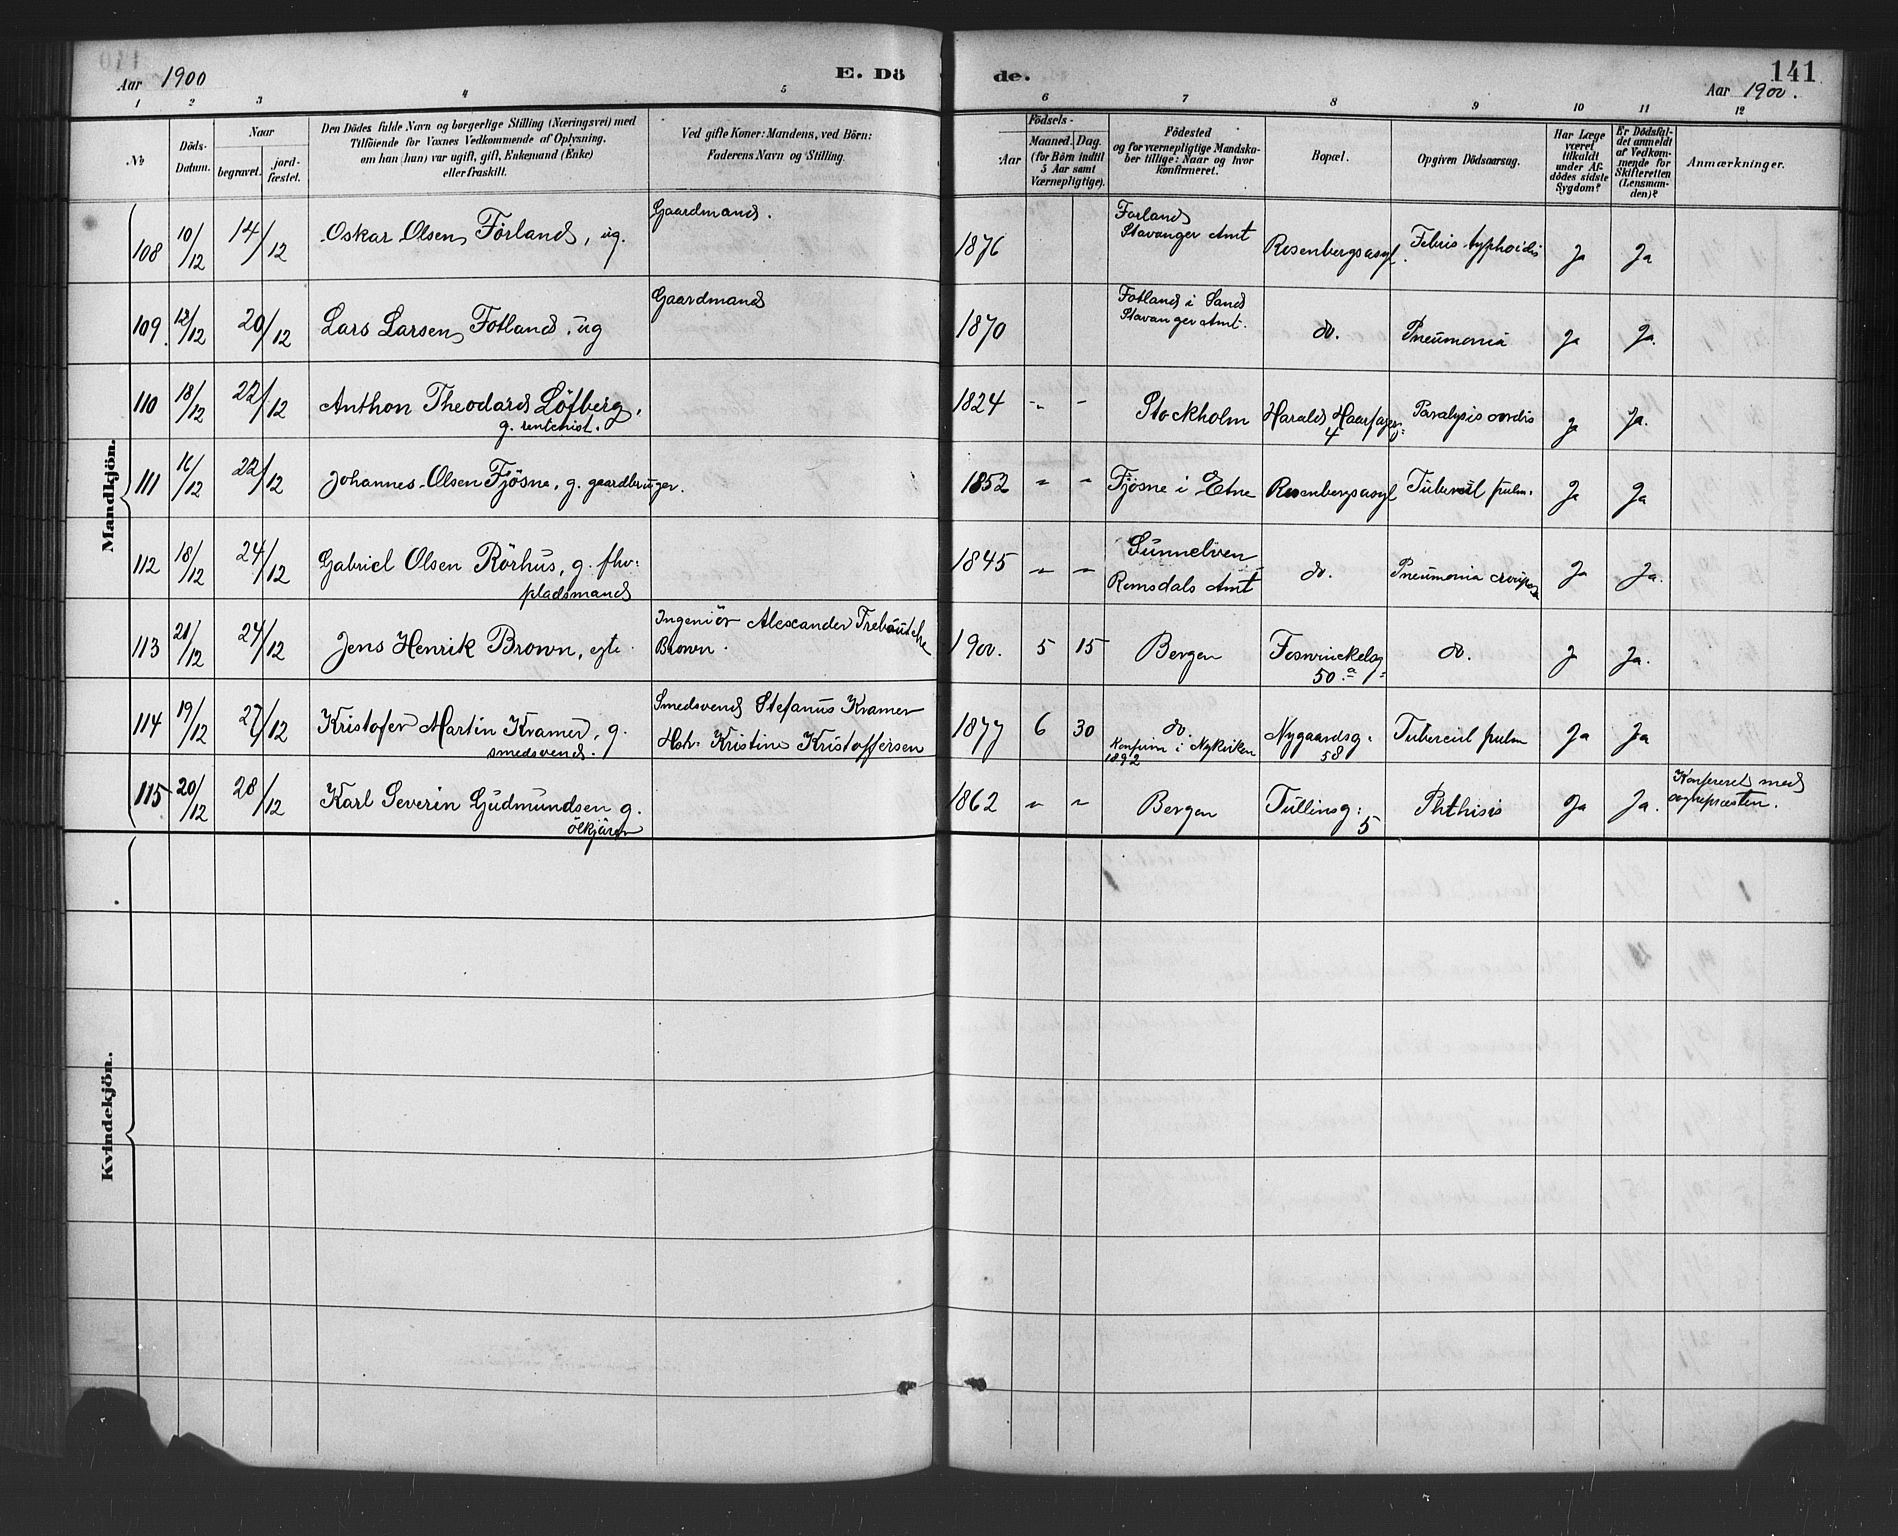 Aar 1900
E. Dö
de.
141
Aar 1900.
1 2 3 4 5 6 7 8 9 10 11 12
No
Döds-
Datum.
Naar
begravet.
jord-
fæstet.
Den Dödes fulde Navn og borgerlige Stilling (Næringsvei) med
Tilföiende for Voxnes Vedkommende af Oplysning,
om han (hun) var ugift, gift, Enkemand (Enke)
eller fraskilt.
Ved gifte Koner: Mandens, ved Börn:
Faderens Navn og Stilling.
Födsels-
Aar
Maaned. Dag.
(for Börn indtil
5 Aar samt
Værnepligtige).
Födested
og for værnepligtige Mandska-
ber tillige: Naar og hvor
konfirmeret.
Bopæl.
Opgiven Dödsaarsag.
Har Læge
været
tilkaldt
under Af-
dödes sidste
Sygdom?
Er Dödsfal-
det anmeldt
af Vedkom-
mende for
Skifteretten
(Lensman-
den)?
Anmærkninger.
Mandkjön.
108 10/12 14/12 Oskar Olsen Förland, ug. Gaardmand. 1876 Forland Stavanger Amt Rosenbergsasyl. Febris typhoidis Ja Ja
109. 12/12 20/12 Lars Larsen Fotland, ug Gaardmand 1870 Fotland i Sand Stavanger Amt. do. Pneumonia Ja Ja.
110 18/12 22/12 Anthon Theodard Löfberg, g. rentenist. 1824 " " Stockholm Harald Haarfagerg: 4 Paralysis cordis Ja Ja.
111 16/12 22/12 Johannes Olsen Fjösne, g. gaardbruger. 1852 " " Fjösne i Etne Rosenbergsasyl Tubercul pulm. Ja Ja
112 18/12 24/12 Gabriel Olsen Rörhus, g. fhv: pladsmand 1845 " " Romsdals Amt do. Pneumonia Ja Ja.
113 21/12 24/12 Jens Henrik Brown, egte. Ingeniör Alexander Brown. 1900. 5 15 Bergen Foswinckelsg: 50a do. Ja Ja.
114 19/12 27/12 Kristofer Martin Kramer, g. smedsvend. Smedsvend Stefanus Kramer Hstr. Kristine Kristoffersen 1877 6 30 do. Konfirm i Nykirken 1892 Nygaardsg. 58 Tubercul pulm Ja Ja
115 20/12 28/12 Karl Severin Gudmundsen g. ölkjörer 1862 " " Bergen Tullinsg: 5 Phthisis Ja Ja. Konfereret med sognepræsten.
Kvindekjön.